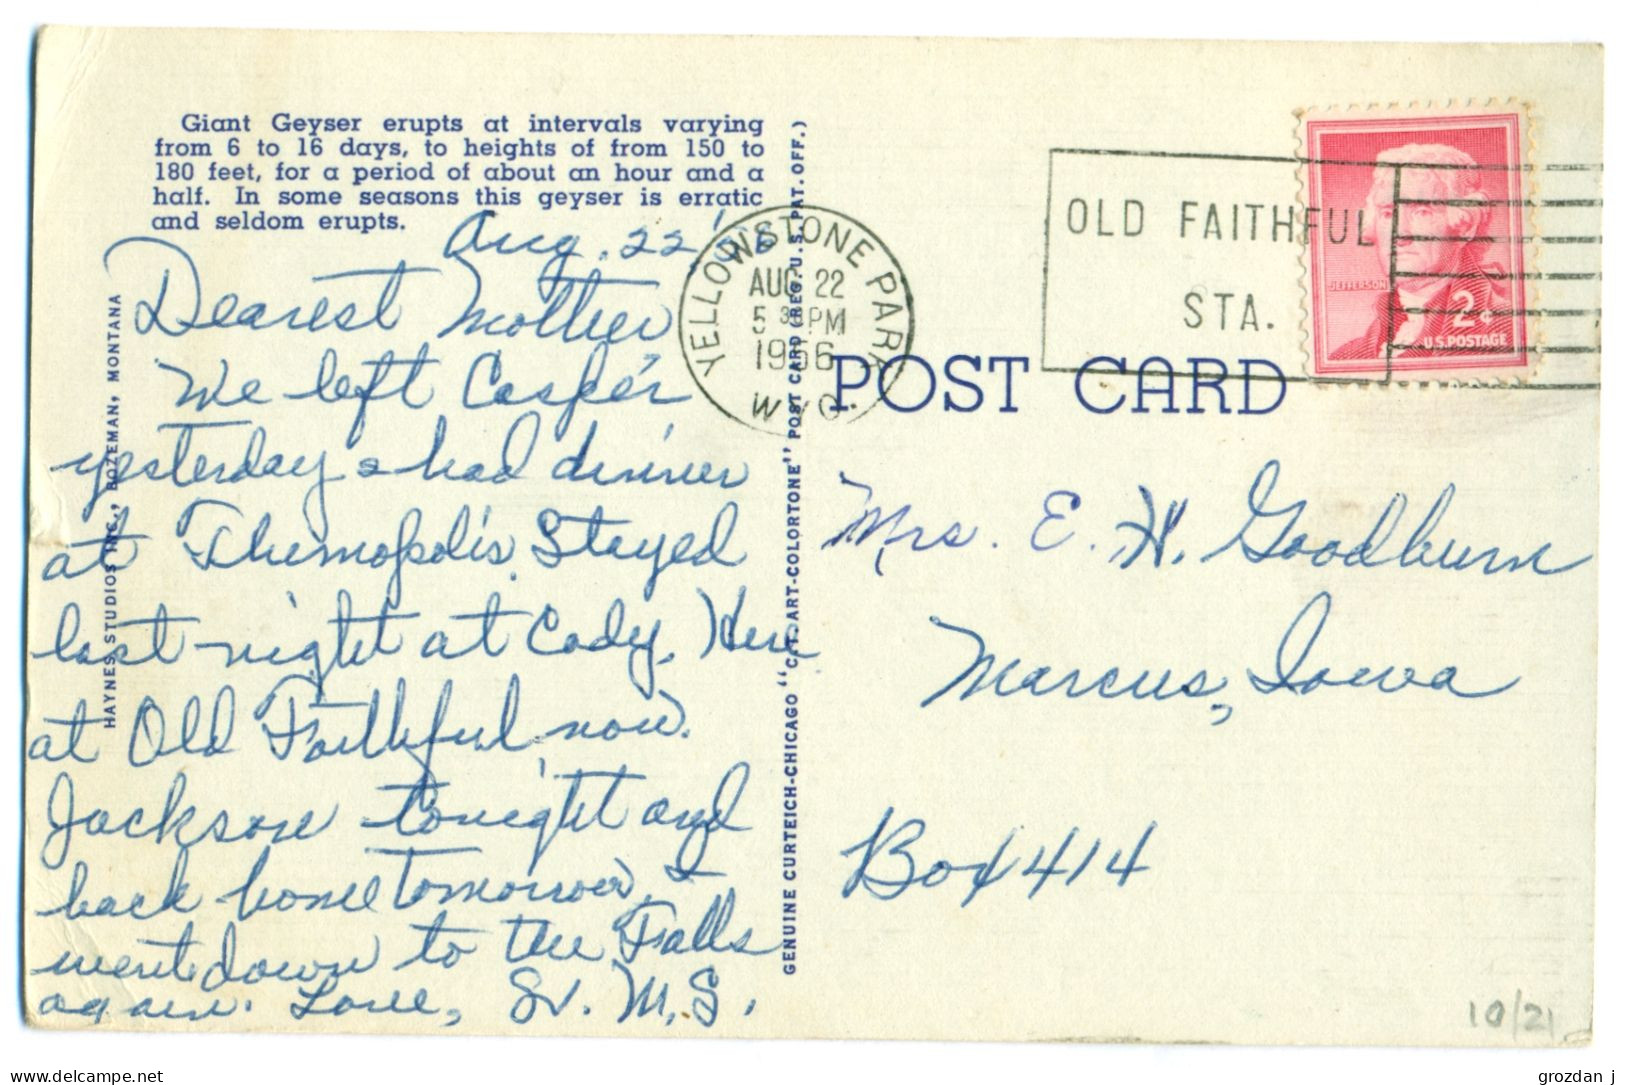 Giant Geyser erupts at intervals varying
from 6 to 16 days, to heights of from 150 to
180 feet, for a period of about an hour and a
half. In some seasons this geyser is erratic
and seldom erupts.
Aug. 22, '56
Dearest Mother
We left Casper
yesterday & had dinner
at Thermopolis. Stayed
last night at Cody. Here
at Old Faithful now.
Jackson tonight and
back home tomorrow. I
went down to the Falls
again. Love, M.S.
HAYNES STUDIOS INC., BOZEMAN, MONTANA
GENUINE CURTEICH-CHICAGO "C.T. ART-COLORTONE" POST CARD (REG. U.S. PAT. OFF.)
YELLOWSTONE PARK
AUG 22
5 30 PM
1956
WYO.
OLD FAITHFUL
STA.
JEFFERSON
2¢
U.S. POSTAGE
POST CARD
Mrs. E. H. Goodburn
Marcus, Iowa
Box 414
10/21
delcampe.net
grozdan j